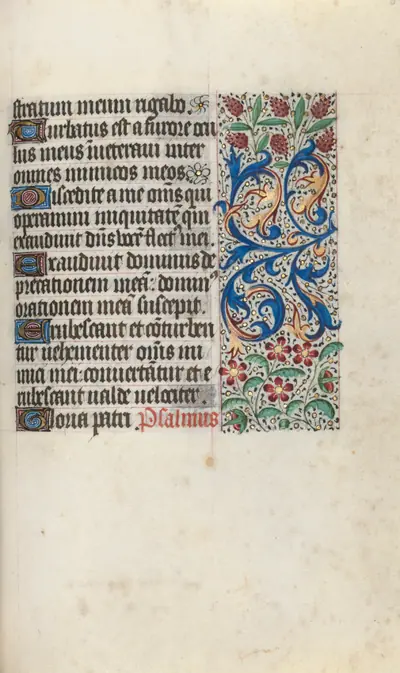 stratum meum rigabo.
Turbatus est a furore ocu
lus meus: inueteraui inter
omnes inimicos meos
Discedite a me oms qui
operamini iniquitatē: qm̄
exaudiuit dn̄s vocē flet⁹ mei.
Exaudiuit dominus de
precationem meā: domin⁹
orationem meā suscepit.
Erubescant et cōturben
tur vehementer oms ini
mici mei: conuertātur et e
rubescant ualde uelociter.
Gloria patri Psalmus